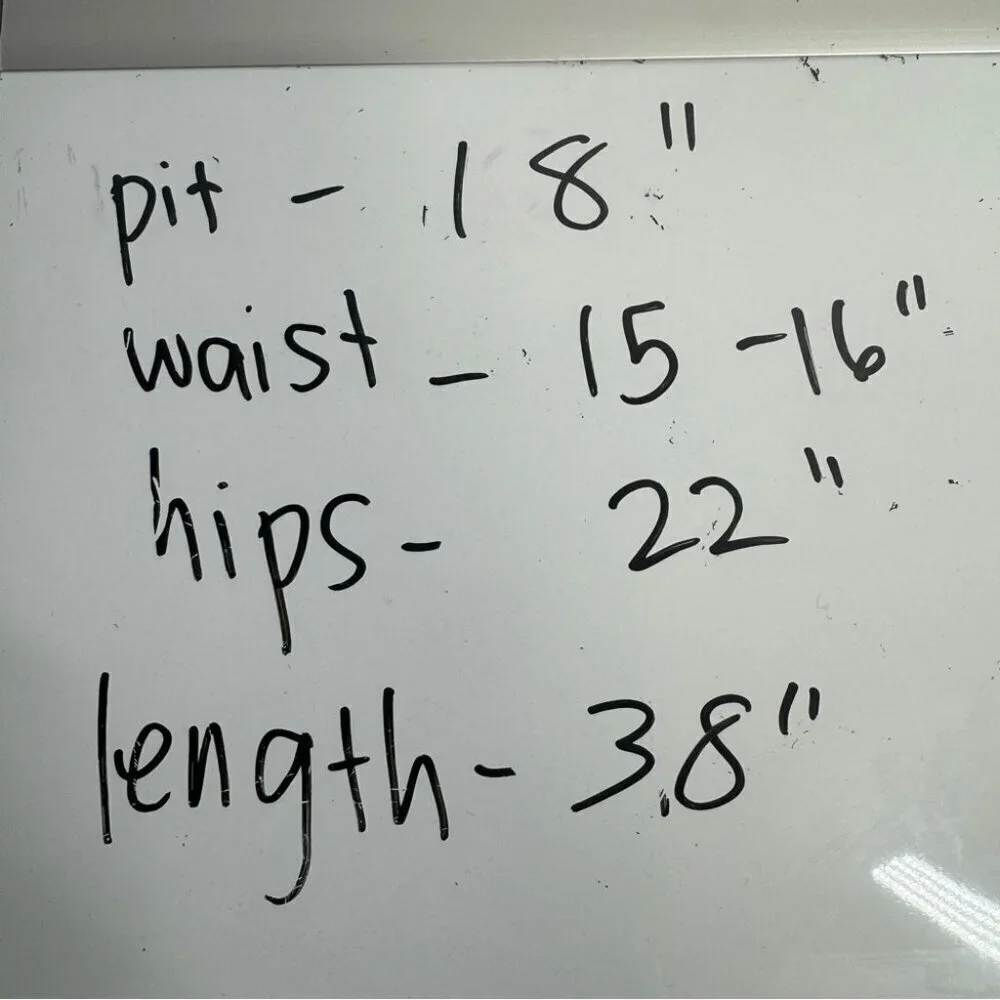 pit - 18"
waist - 15-16"
hips - 22"
length - 38"